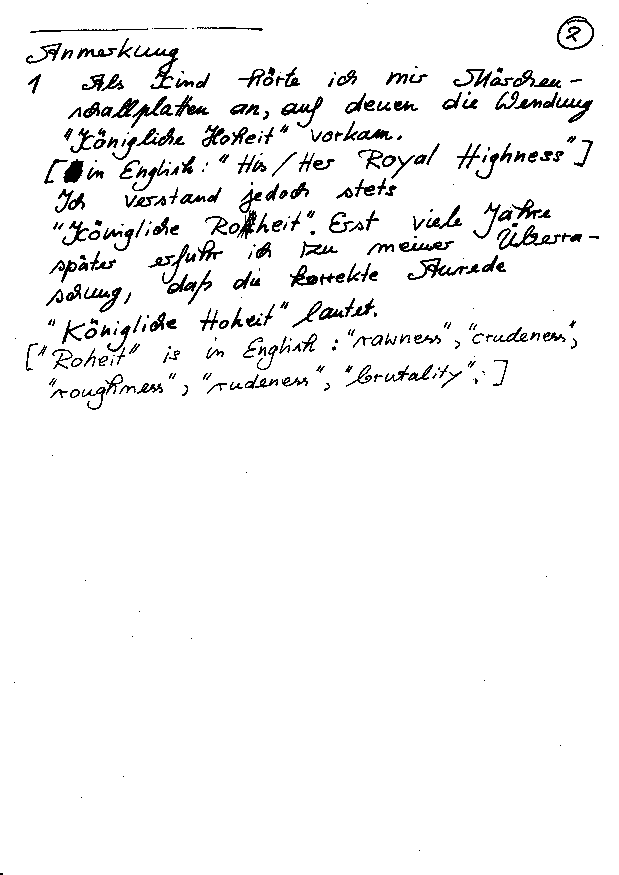 2
Anmerkung
1 Als Kind hörte ich mir Märchen-
schallplatten an, auf denen die Wendung
"Königliche Hoheit" vorkam.
[in English: "His/Her Royal Highness"]
Ich verstand jedoch stets
"Königliche Roheit". Erst viele Jahre
später erfuhr ich zu meiner Überra-
schung, daß die korrekte Anrede
"Königliche Hoheit" lautet.
["Roheit" is in English: "rawness", "crudeness",
"roughness", "rudeness", "brutality".]